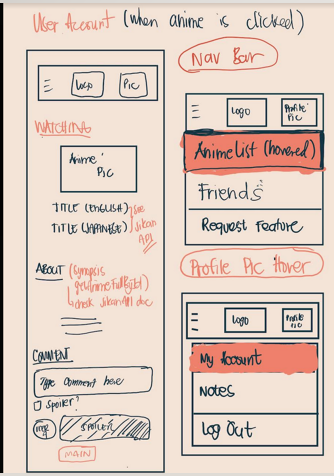 User Account (when anime is clicked)
Logo
Pic
WATCHING
Anime
Pic
TITLE (ENGLISH)
TITLE (JAPANESE)
see
Jikan
API
ABOUT (synopsis
check Jikan API doc
COMMENT
Type Comment here
Spoiler?
SPOILER
MAIN
Nav Bar
Logo
Profile
Pic
Anime List (hovered)
Friends
Request Feature
Profile Pic Hover
Logo
Profile
Pic
My Account
Notes
Log Out